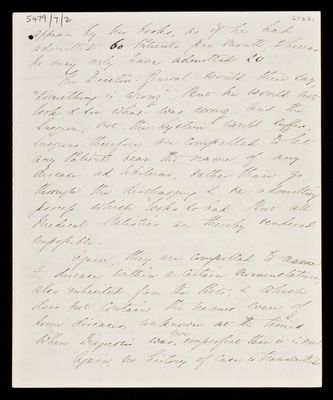 5479/7/2
appear by his books, as if he had
admitted 60 Patients per month, whereas
he may only have admitted 20.
The Director-General would then say,
"something is wrong". But he would not
look & see what was wrong, and the
Surgeon, not the system would suffer.
Surgeons therefore are compelled to let
any Patient bear the name of any
disease ad libitum, rather than go
through the discharging & re-admitting
process which "looks so bad". And all
Medical Statistics are thereby rendered
impossible.
Again, they are compelled to name
the disease within a certain Nomenclature,
also inherited from the , & which
does not contain the names even of
some diseases, unknown at the times
when Diagnosis was more imperfect than it is now.
Again, no history of Cases is transmitted